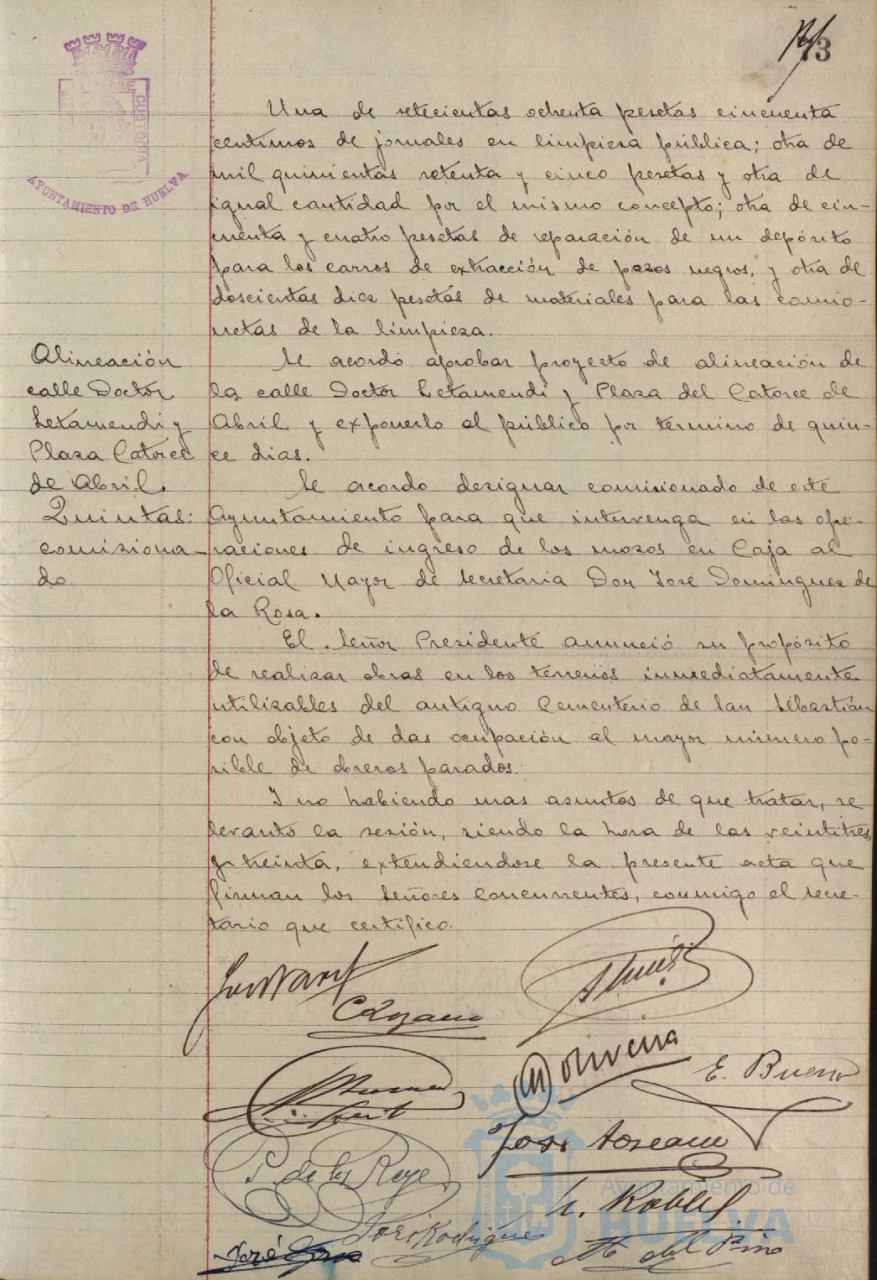 73
CUSTODIA
AYUNTAMIENTO DE HUELVA
Una de setecientas ochenta pesetas cincuenta
centimos de jornales en limpieza pública; otra de
mil quinientas setenta y cinco pesetas y otra de
igual cantidad por el mismo concepto; otra de cin-
cuenta y cuatro pesetas de reparación de un depósito
para los carros de extracción de pozos negros, y otra de
doscientas diez pesetas de materiales para las camio-
netas de la limpieza.
Alineación
calle Doctor
Letamendi y
Plaza Catorce
de Abril.
Se acordó aprobar proyecto de alineación de
la calle Doctor Letamendi y Plaza del Catorce de
Abril y exponerlo al público por termino de quin-
ce dias.
Quintas:
comisiona-
do
Se acordo designar comisionado de este
Ayuntamiento para que intervenga en las ope-
raciones de ingreso de los mozos en Caja al
Oficial Mayor de Secretaria Don José Dominguez de
la Rosa.
El Señor Presidente anunció su propósito
de realizar obras en los terrenos inmediatamente
utilizables del antiguo Cementerio de San Sebastián
con objeto de das ocupación al mayor número po-
sible de obreros parados.
Y no habiendo mas asuntos de que tratar, se
levantó la sesión, siendo la hora de las veintitres
y treinta, extendiendose la presente acta que
firman los Señores concurrentes, conmigo el secre-
tario que certifico.
Oliveira
E. Bueno
P. de los Reyes
José
Robles
José Rodríguez
M. del Pino
José
Ayuntamiento de
HUELVA